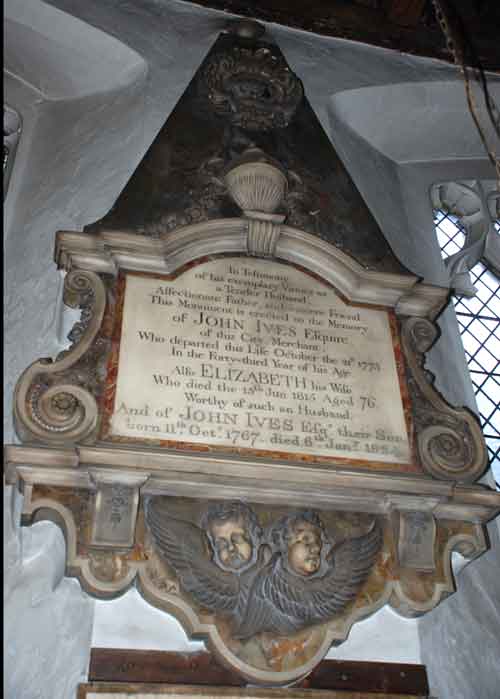 In Testimony
of his exemplary Virtues as
a Tender Husband,
Affectionate Father, and sincere Friend
This Monument is erected to the Memory
of JOHN IVES Esquire
of this City, Merchant
Who departed this Life October the
In the Forty-third Year of his Age
Also ELIZABETH his Wife
Who died the 15th Jun 1815 Aged 76.
Worthy of such an Husband.
And of JOHN IVES Esqr. their Son
born 11th Octr. 1767, died 6th Jany.